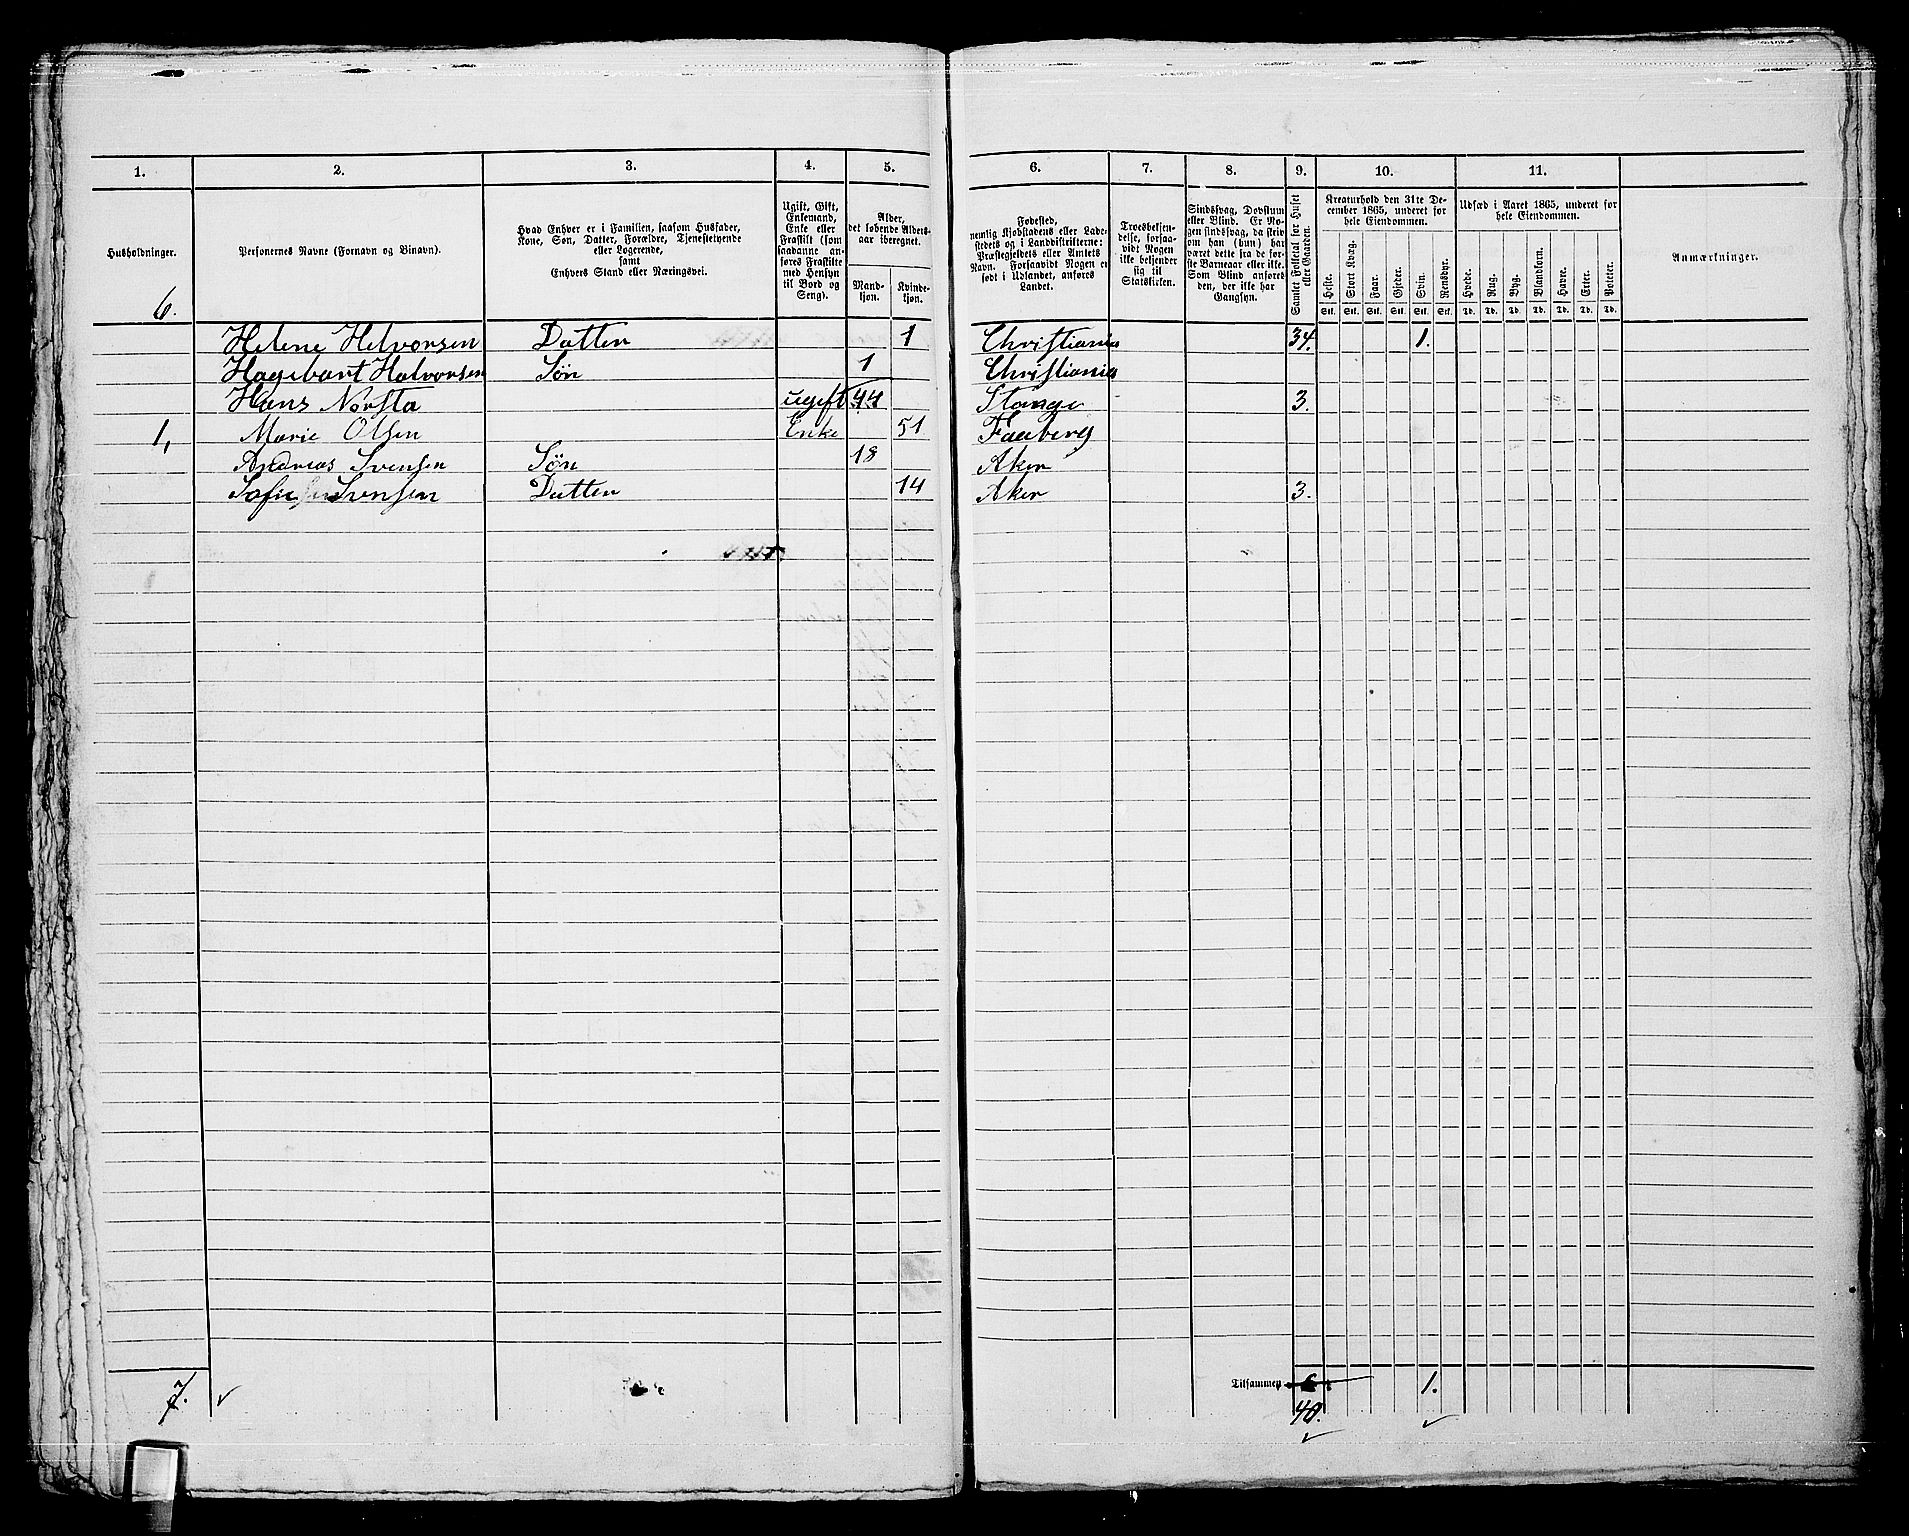 1. 2. 3. 4. 5. 6. 7. 8. 9. 10. 11.
Husholdninger.
Personernes Navne (Fornavn og Binavn).
Hvad Enhver er i Familien, saasom Husfader,
Kone, Søn, Datter, Forældre, Tjenestetyende
eller Logerende,
samt
Enhvers Stand eller Næringsvei.
Ugift, Gift,
Enkemand,
Enke eller
Fraskilt (som
saadanne an-
føres Fraskilte
med Hensyn
til Bord og
Seng).
Alder,
det løbende Alders-
aar iberegnet.
Mand-
kjøn.
Kvinde-
kjøn.
Fødested,
nemlig Kjøbstadens eller Lade-
stedets og i Landdistrikterne:
Præstegjeldets eller Amtets
Navn. Forsaavidt Nogen er
født i Udlandet, anføres
Landet.
Troesbekjen-
delse, forsaa-
vidt Nogen
ikke bekjender
sig til
Statskirken.
Sindssvag, Døvstum
eller Blind. Er No-
gen sindssvag, da skriv
om han (hun) har
været dette fra de før-
ste Barneaar eller ikke.
Som Blind anføres
den, der ikke har
Gangsyn.
Samlet Folketal for Huset
eller Gaarden.
Kreaturhold den 31te De-
cember 1865, underet for
hele Eiendommen.
Heste. Stort Kvæg. Faar. Gjeder. Svin. Rensdyr.
Stk. Stk. Stk. Stk. Stk. Stk.
Udsæd i Aaret 1865, underet for
hele Eiendommen.
Hvede. Rug. Byg. Blandkorn. Havre. Erter. Poteter.
Td. Td. Td. Td. Td. Td. Td.
Anmærkninger.
6.
Helene Helvorsen Datter 1 Christiania 34. 1.
Hagebart Halvorsen Søn 1 Christiania
Hans Norsta ugift 44 Stange 3.
1, Marie Olsen Enke 51 Faaberg
Andreas Svensen Søn 18 Aker
Sofie Svensen Datter 14 Aker 3.
7. ✓
Tilsammen 1.
40. ✓
✓